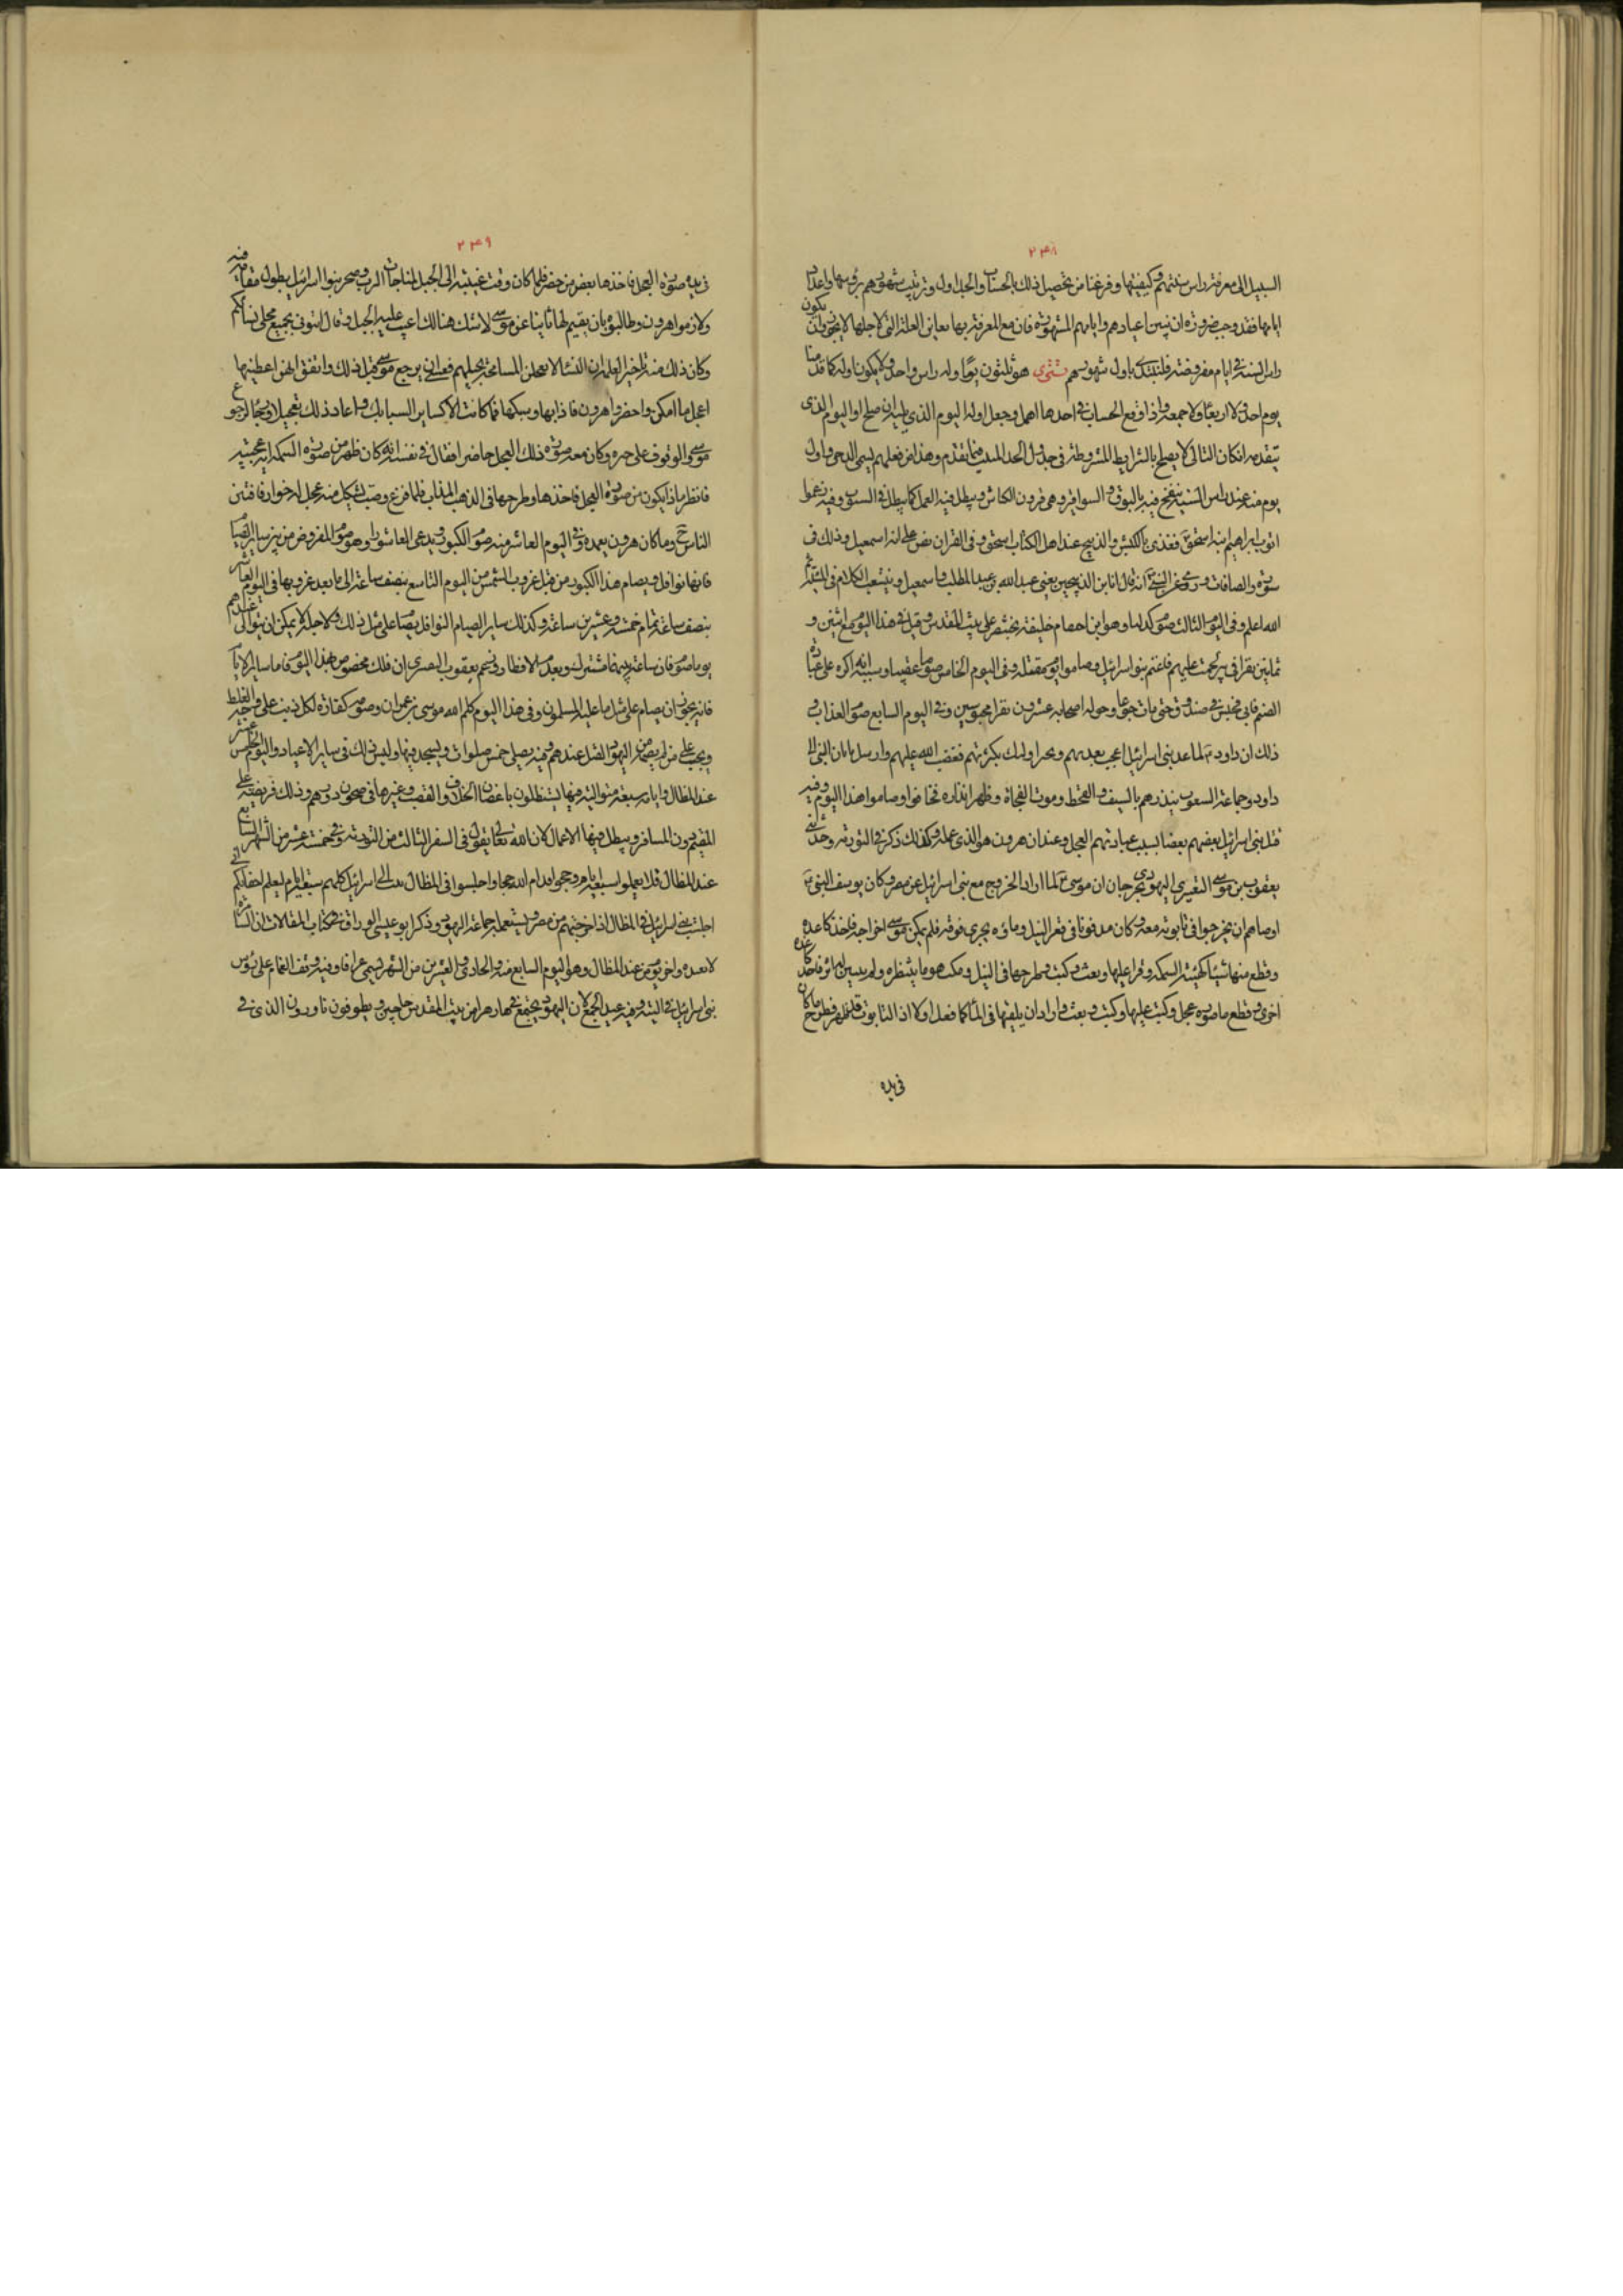 ٢٤٨
السبيل الى معرفة راس سنتهم وكيفيتها وفرغنا من تحصيل ذلك بالحساب والجداول وترتيب شهورهم برؤسها واعداد
ايامها فقد وجب ضرورة ان نبين اعيادهم وايامهم المشهورة فان مع المعرفة بها يعاين العلة التي لاجلها لا يجوز ان يكون
راس السنة في ايام مفروضة فلنبتدئ باول شهورهم تشرى هو ثلثون يوما وله راس واحد ولا يكون اوله كما قدمنا
يوم احد ولا اربعا ولا جمعة واذا وقع الحساب في احدها اهمل وجعل اوله اليوم الذي يليه ان صلح او اليوم الذي
يتقدمه ان كان التالي لا يصلح بالشرايط المشروطة في جدول الحد المثبت فيما تقدم وهذا من فعلهم يسمى الدحى واول
يوم منه عند راس السنة ينفخ فيه بالبوق والسوافر وهي قرون الكباش ويبطل فيه العمل كما يبطل في السبوت وفيه زعموا
قرب ابراهيم ابنه اسحق ففدى بالكبش والذبيح عند اهل الكتاب اسحق وفي القران نص على انه اسمعيل وذلك في
سورة والصافات وروى عن النبي انه قال انا ابن الذبيحين يعني عبد الله بن عبد المطلب واسمعيل ويتشعب الكلام في المسئلة ثم
الله اعلم وفي اليوم الثالث صوم كدليا وهو ابن احيقام خليفة بختنصر على بيت المقدس وقيل في هذا اليوم مع اثنين و
ثمانين نفرا في بئر اجتمعت عليهم فاغتم بنو اسرائيل وصاموا يوم مقتله وفي اليوم الخامس صوم عقيبا وسببه انه اكره على عبادة
الصنم فابى فحبس في صندوق حتى مات جوعا وحوله اصحابه عشرون نفرا محبوسين وفي اليوم السابع صوم العذاب و
ذلك ان داود لما عد بني اسرائيل اعجب بعددهم وفخر اولئك بكثرتهم فغضب الله عليهم وارسل ناثان النبي الى
داود وجماعة الشعوب ينذرهم بالسيف والقحط وموت الفجاة وظهر انذاره فخافوا وصاموا هذا اليوم وفيه
قتل بني اسرائيل بعضهم بعضا بسبب عبادتهم العجل وعندهم ان هرون هو الذي عمله وكذلك ذكر في التورية وحدثني
يعقوب بن موسى النقرسي اليهودي بجرجان ان موسى لما اراد الخروج مع بني اسرائيل عن مصر وكان يوسف النبي
اوصاهم ان يخرجوا في تابوته معه وكان مدفونا في قعر النيل وماؤه يجري فوقه فلم يمكن موسى اخراجه فاخذ كاغدة
وقطع منها شيئا كهيئة السمكة وقرا عليها وبعث وكتب وطرحها في النيل ومكث هو ما ينتظره ولم يتبين له اثر فاخذ كاغدة
اخرى وقطع ما صوره عجل وكتب عليها وكتب وبعث واراد ان يلقيها في الماء كما فعل اولا اذ التابوت قد ظهر فطرح ما كان
في يده
٢٤٩
في يده صورة العجل فاخذها بعض من حضر فلما كان وقت غيبته الى الجبل لمناجاة الرب وضجر بنوا اسرائيل بطول مقامه فيه
ولازموا هرون وطالبوه بان يقيم لهم نائبا عن موسى لا شك هنالك اعيب عليه الجبل وقال ائتوني بجميع محلى نسائكم
وكان ذلك منه تاخيرا لعلمه ان النساء لا يعجلن المسامحة بحليهم فعسى ان يرجع موسى قبل ذلك واتفق انهن اعطينها
اعجل ما امكن واحضروا هرون فاذابها وسبكها فما كانت الا كساير السبائك واعاد ذلك تعجيلا ويحا الرجوع
موسى والوقوف على خبره وكان معه صورة ذلك العجل حاضرا فقال في نفسه انه كان ظهر من صورة السمكة اية عجيبة
فانظر ماذا يكون من صورة العجل فاخذها وطرحها في الذهب المذاب فلما فرغ وصب تشكل منه عجل له خوار فافتتن
الناس وما كان هرون يعمده وفي اليوم العاشر منه صوم الكبور ويدعى العاشورا وهو صوم المفروض من بين ساير الصيام
فانها نوافل ويصام هذا الكبور من قبل غروب الشمس من اليوم التاسع بنصف ساعة الى ما بعد غروبها في اليوم العاشر
بنصف ساعة تمام خمسة وعشرين ساعة وكذلك ساير الصيام النوافل يصام على مثل ذلك ولاجله لا يمكن ان يتوالى عندهم
يوما صوم فان ساعة بينهما مشتركة وبعد للافطار وزعم يعقوب البصري ان ذلك مخصوص بهذا اليوم فاما ساير الايام
فانه يجوز ان يصام على مثل ما عليه المسلمون وفي هذا اليوم كلم الله موسى بن عمران وصومه كفارة لكل ذنب على وجه الغلط
ويجب على من لم يصمه من اليهود القتل عندهم وفيه يصلي خمس صلوات ويسجد فيها وليس ذلك في ساير الاعياد واليوم الخامس عشر
عند المظال وايامه سبعة متوالية فيها يستظلون باغصان الخلاف والقصب وغيرها في صحون دورهم وذلك فريضة على
المقيم دون المسافر ويبطل فيها الاعمال لان الله تعالى يقول في السفر الثالث من التورية وفي خمسة عشر من الشهر السابع
عند المظال فلا يعملوا سبعة ايام وحجوا قدام الله حجا واجلسوا في المظال بيت الى اسرائيل كلهم سبعة ايام ليعلم اخلافكم اني
اجلست بني اسرائيل في المظال اذ اخرجتهم من مصر ويستعمله جماعة اليهود وذكر ابو عيسى الوراق في كتاب المقالات ان السامرة
لا تعده واخر يوم من عند المظال وهو اليوم السابع منه والحادي والعشرين من الشهر يسمى عرافا وفيه وقف الغمام على رؤس
بني اسرائيل في التيه وفيه عيد الجمع لان اليهود تجتمع في هارهرا من بيت المقدس حاجين ويطوفون ناورون الذي في